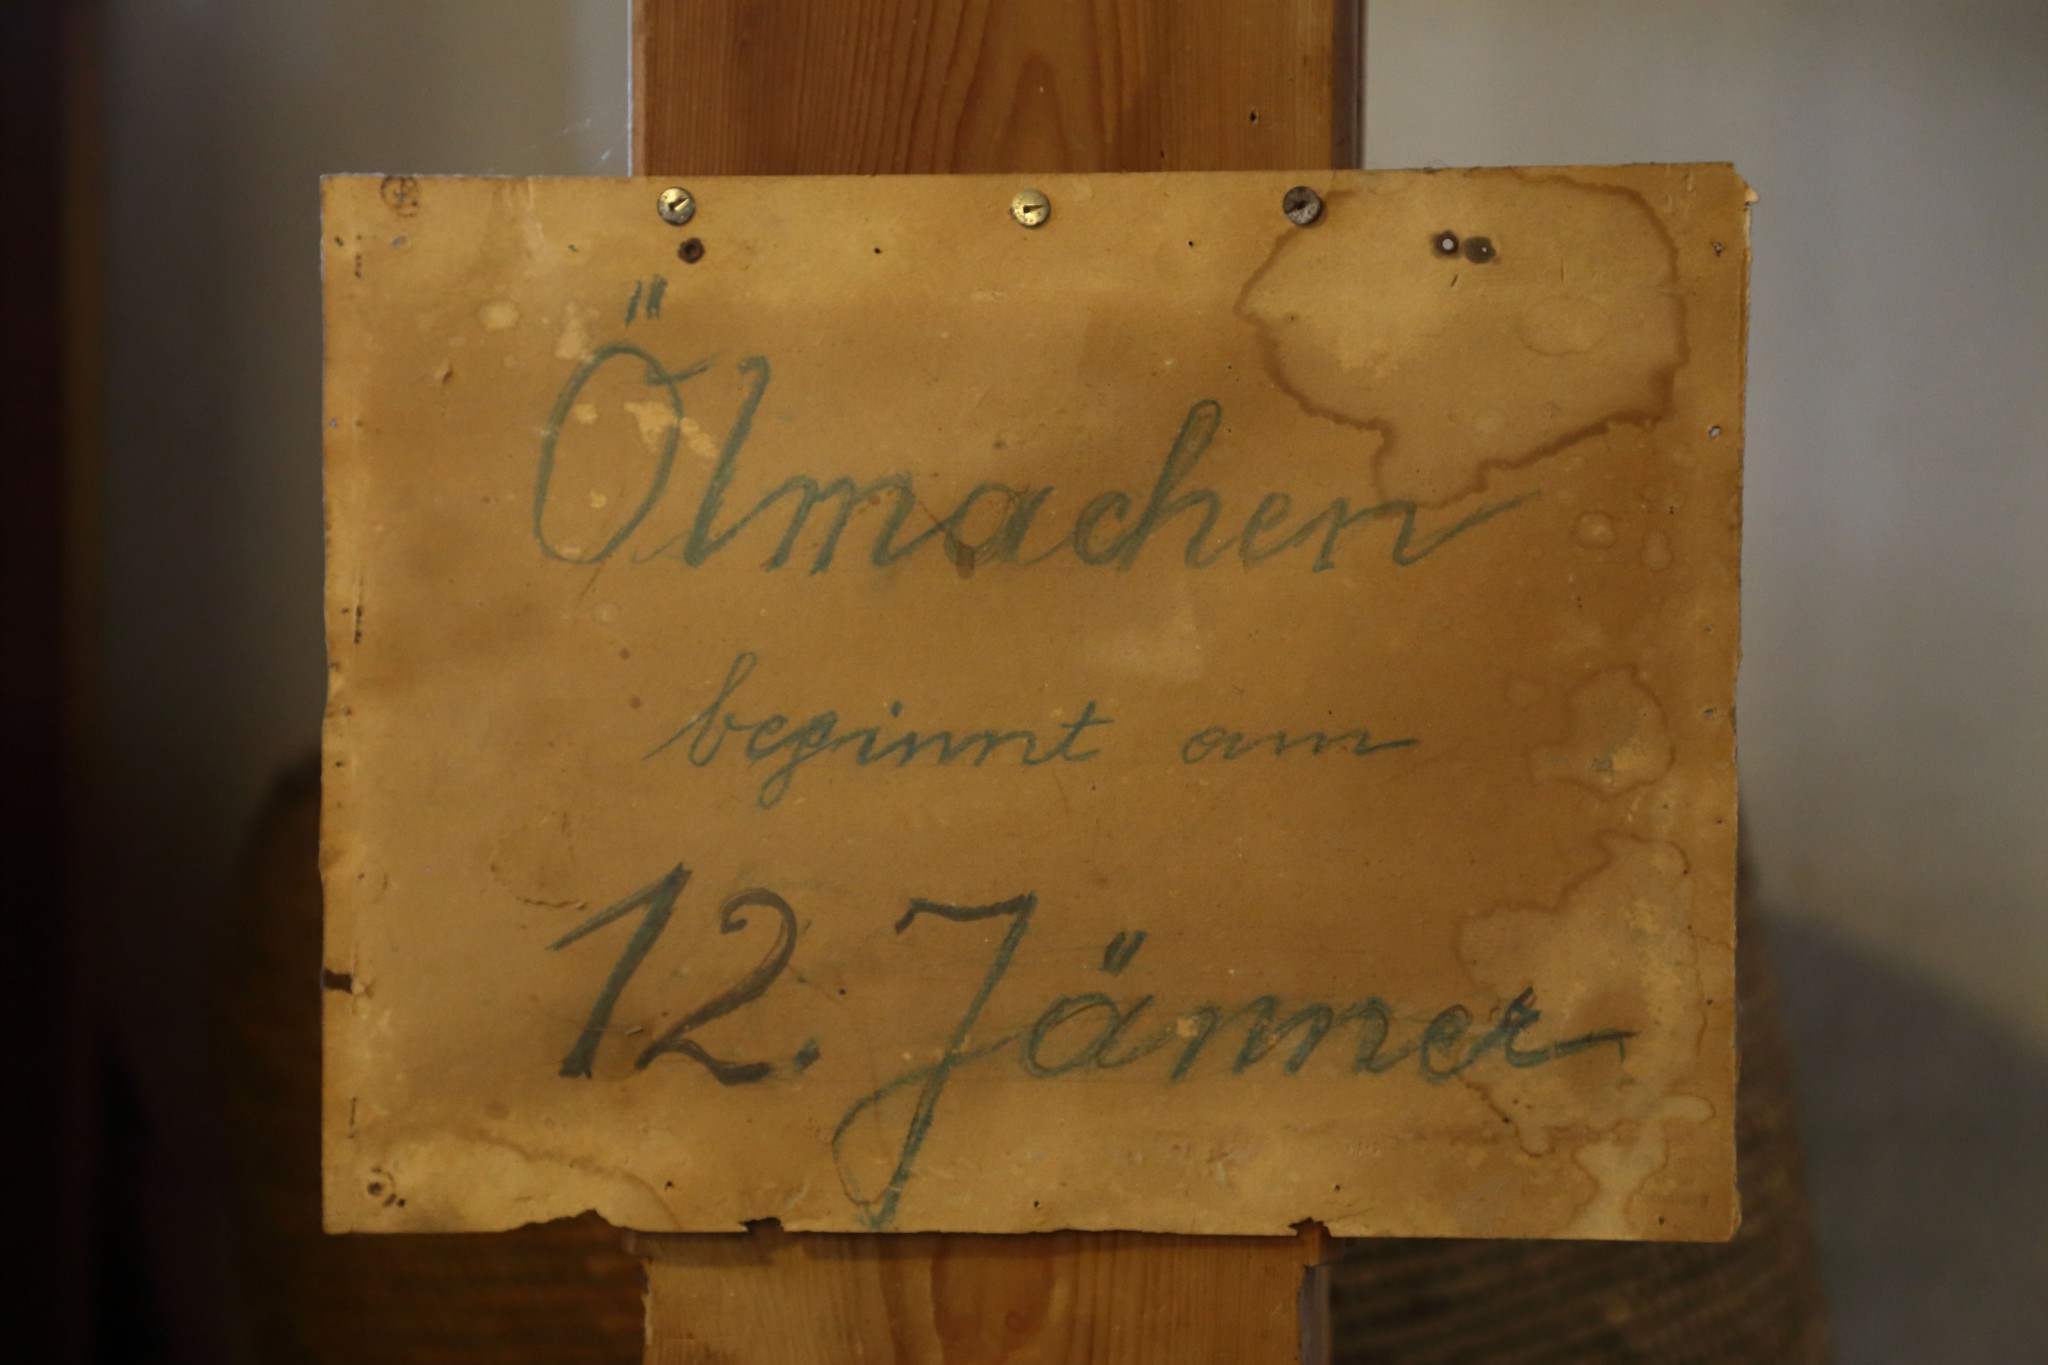 Ölmachen
beginnt am
12. Jänner